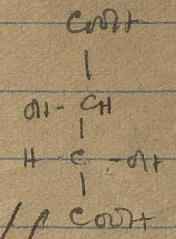 COOH
|
OH - CH
|
H - C - OH
|
COOH